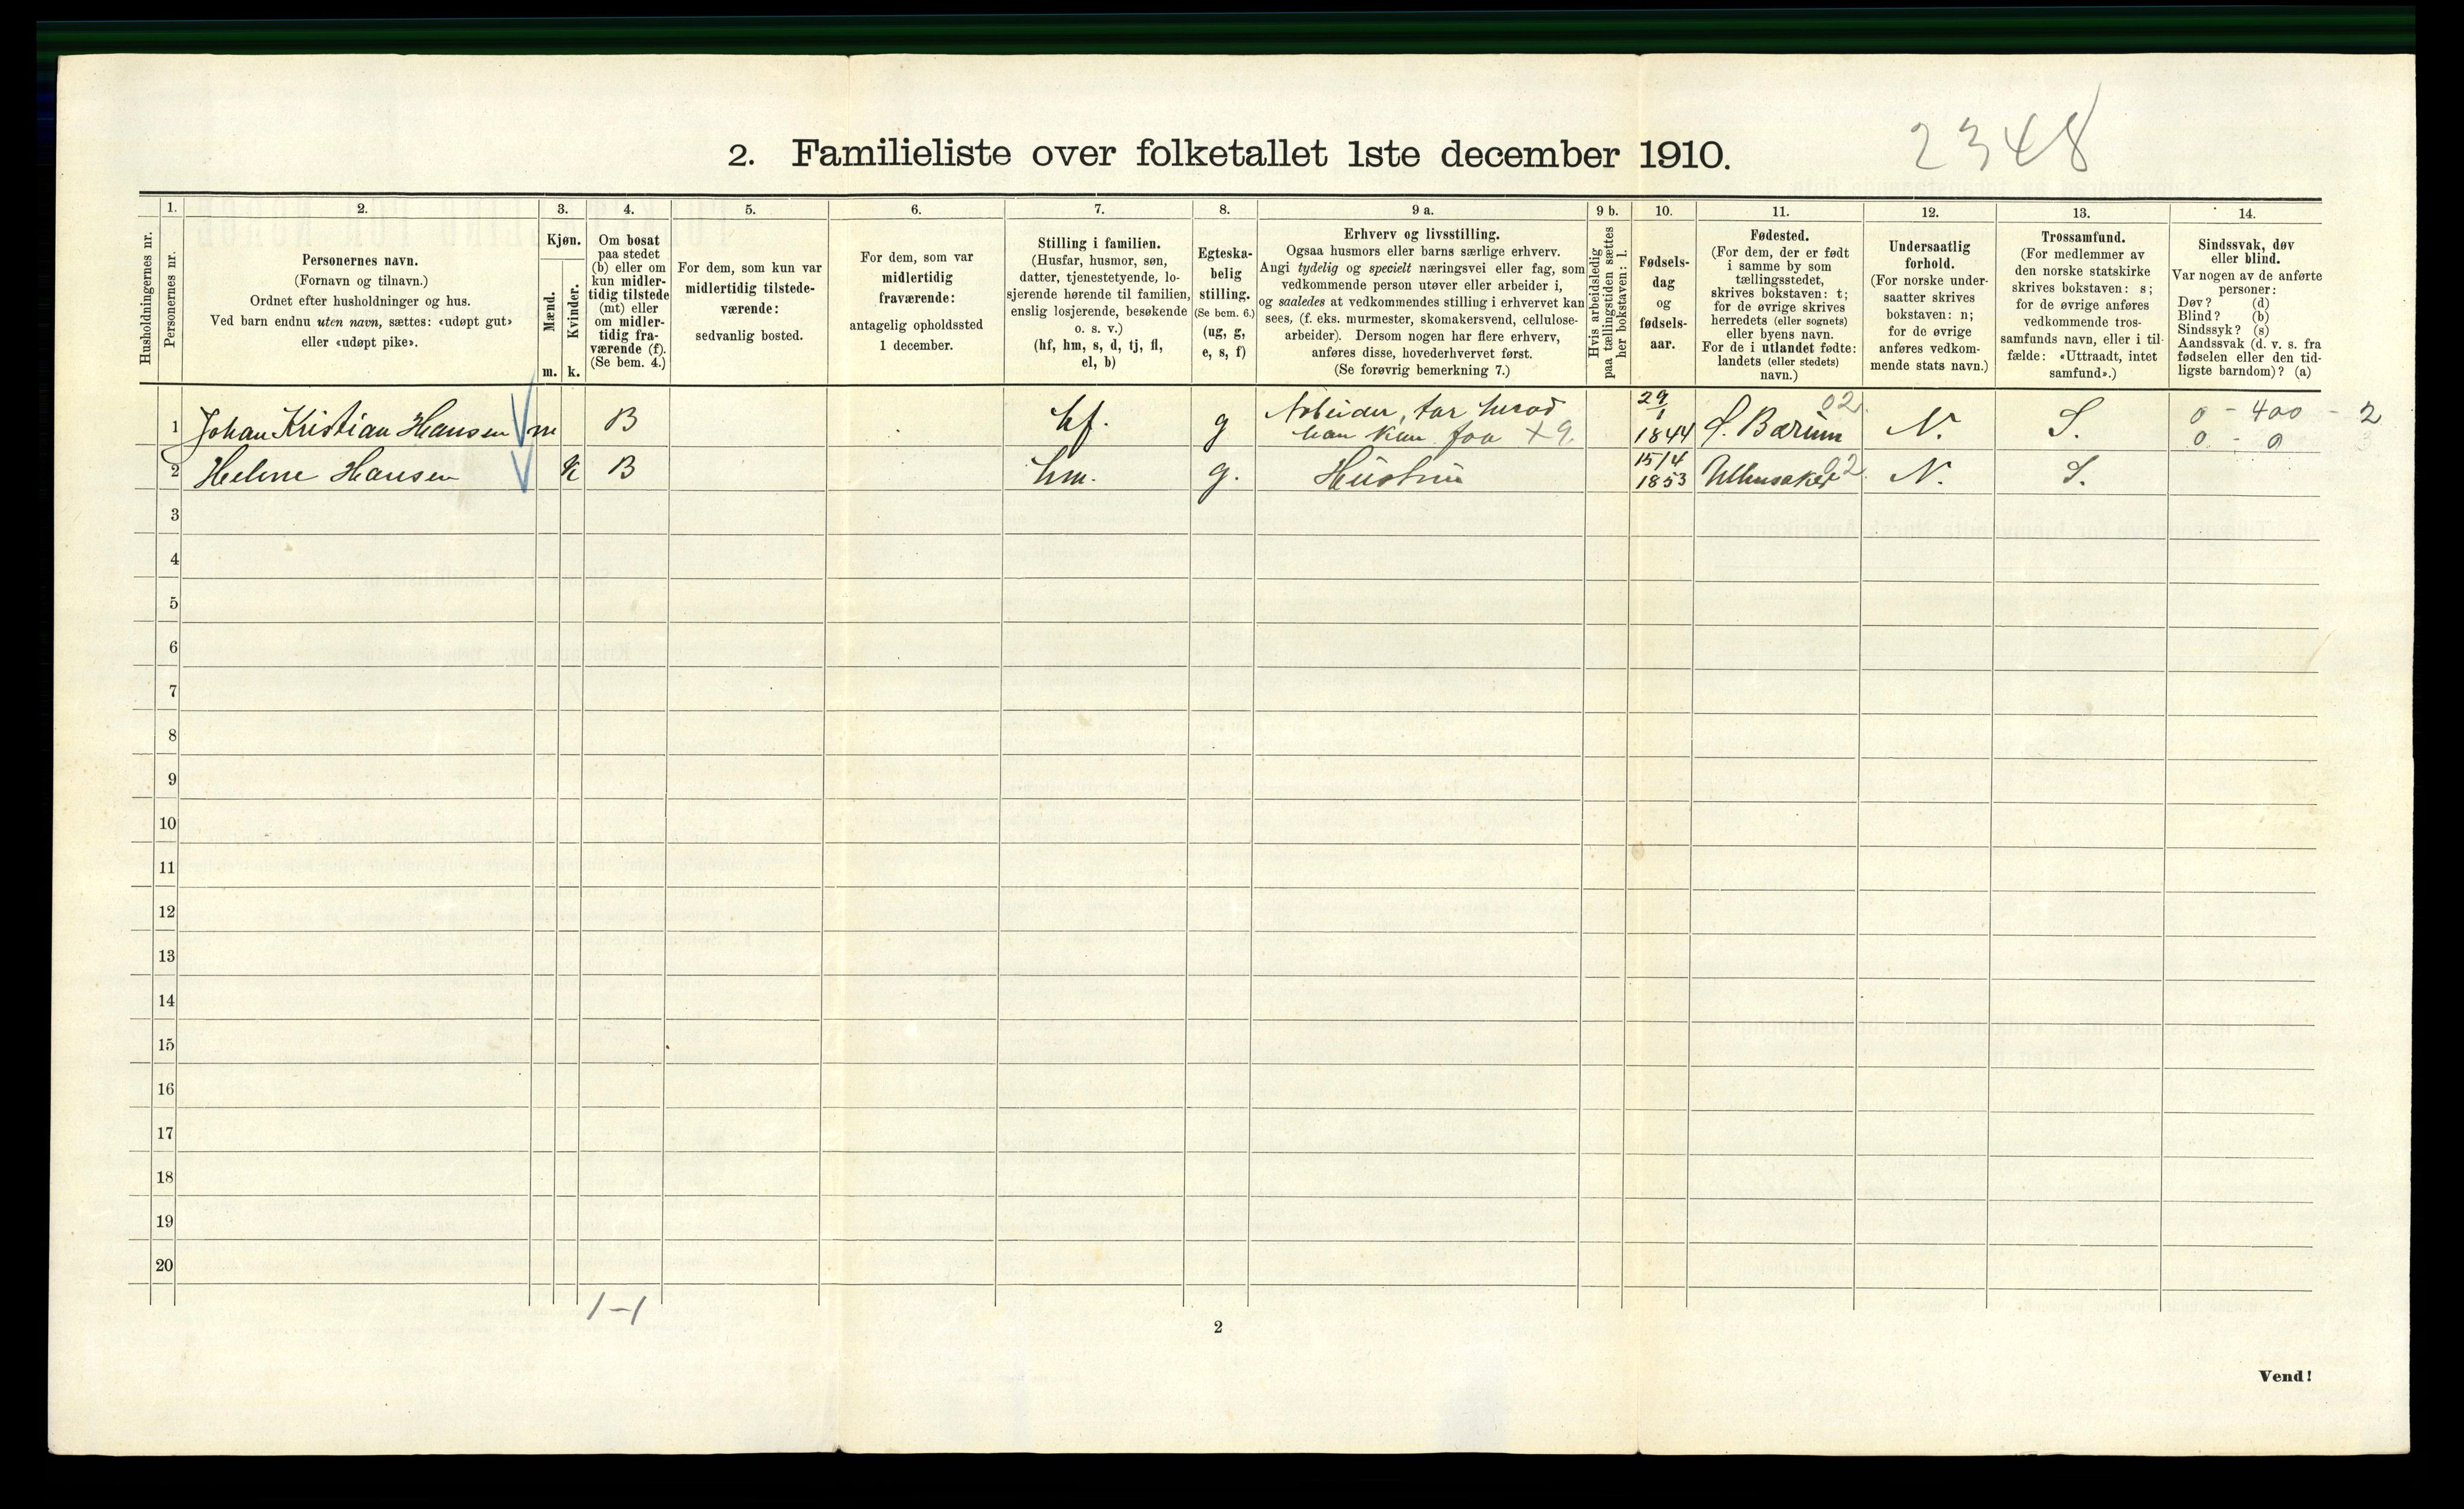 2348
2. Familieliste over folketallet 1ste december 1910.
Husholdningernes nr.
1.
Personernes nr.
2.
Personernes navn.
(Fornavn og tilnavn.)
Ordnet efter husholdninger og hus.
Ved barn endnu uten navn, sættes: «udøpt gut»
eller «udøpt pike».
3.
Kjøn.
Mænd.
m.
Kvinder.
k.
4.
Om bosat
paa stedet
(b) eller om
kun midler-
tidig tilstede
(mt) eller
om midler-
tidig fra-
værende (f).
(Se bem. 4.)
5.
For dem, som kun var
midlertidig tilstede-
værende:
sedvanlig bosted.
6.
For dem, som var
midlertidig
fraværende:
antagelig opholdssted
1 december.
7.
Stilling i familien.
(Husfar, husmor, søn,
datter, tjenestetyende, lo-
sjerende hørende til familien,
enslig losjerende, besøkende
o. s. v.)
(hf, hm, s, d, tj, fl,
el, b)
8.
Egteska-
belig
stilling.
(Se bem. 6.)
(ug, g,
e, s, f)
9 a.
Erhverv og livsstilling.
Ogsaa husmors eller barns særlige erhverv.
Angi tydelig og specielt næringsvei eller fag, som
vedkommende person utøver eller arbeider i,
og saaledes at vedkommendes stilling i erhvervet kan
sees, (f. eks. murmester, skomakersvend, cellulose-
arbeider). Dersom nogen har flere erhverv,
anføres disse, hovederhvervet først.
(Se forøvrig bemerkning 7.)
9 b.
Hvis arbeidsledig
paa tællingstiden sættes
her bokstaven: l.
10.
Fødsels-
dag
og
fødsels-
aar.
11.
Fødested.
(For dem, der er født
i samme by som
tællingsstedet,
skrives bokstaven: t;
for de øvrige skrives
herredets (eller sognets)
eller byens navn.
For de i utlandet fødte:
landets (eller stedets)
navn.)
12.
Undersaatlig
forhold.
(For norske under-
saatter skrives
bokstaven: n;
for de øvrige
anføres vedkom-
mende stats navn.)
13.
Trossamfund.
(For medlemmer av
den norske statskirke
skrives bokstaven: s;
for de øvrige anføres
vedkommende tros-
samfunds navn, eller i til-
fælde: «Uttraadt, intet
samfund».)
14.
Sindssvak, døv
eller blind.
Var nogen av de anførte
personer:
Døv? (d)
Blind? (b)
Sindssyk? (s)
Aandssvak (d. v. s. fra
fødselen eller den tid-
ligste barndom)? (a)
1 Johan Kristian Hansen m B hf. g Arbeider, tar hvad
han kan faa +9. 29/1 1844 S. Bærum 02. N. S. 0 - 400 - 2
0 - 0 3
2 Helene Hansen K B hm. g. Hustru 15/4 1853 Ullensaker 02 N. S.
3
4
5
6
7
8
9
10
11
12
13
14
15
16
17
18
19
20
1-1
2
Vend!